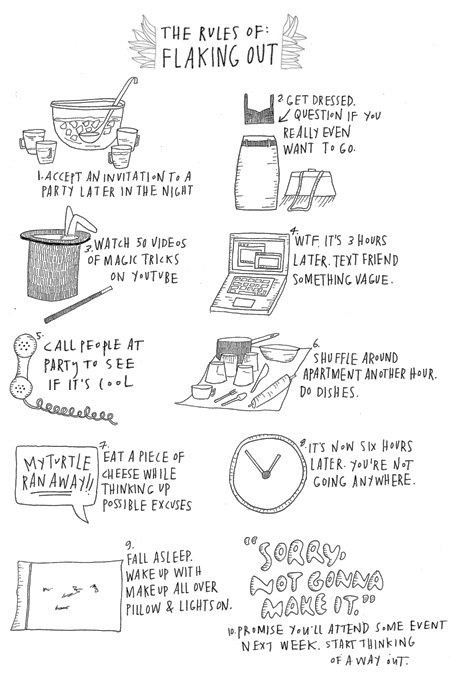 THE RULES OF:
FLAKING OUT
1. ACCEPT AN INVITATION TO A
PARTY LATER IN THE NIGHT
2. GET DRESSED.
QUESTION IF YOU
REALLY EVEN
WANT TO GO.
3. WATCH 50 VIDEOS
OF MAGIC TRICKS
ON YOUTUBE
4.
WTF. IT'S 3 HOURS
LATER. TEXT FRIEND
SOMETHING VAGUE.
5.
CALL PEOPLE AT
PARTY TO SEE
IF IT'S COOL
6.
SHUFFLE AROUND
APARTMENT ANOTHER HOUR.
DO DISHES.
MY TURTLE
RAN AWAY!!
7.
EAT A PIECE OF
CHEESE WHILE
THINKING UP
POSSIBLE EXCUSES
8. IT'S NOW SIX HOURS
LATER. YOU'RE NOT
GOING ANYWHERE.
9.
FALL ASLEEP.
WAKE UP WITH
MAKEUP ALL OVER
PILLOW & LIGHTS ON.
"SORRY,
NOT GONNA
MAKE IT."
10. PROMISE YOU'LL ATTEND SOME EVENT
NEXT WEEK. START THINKING
OF A WAY OUT.